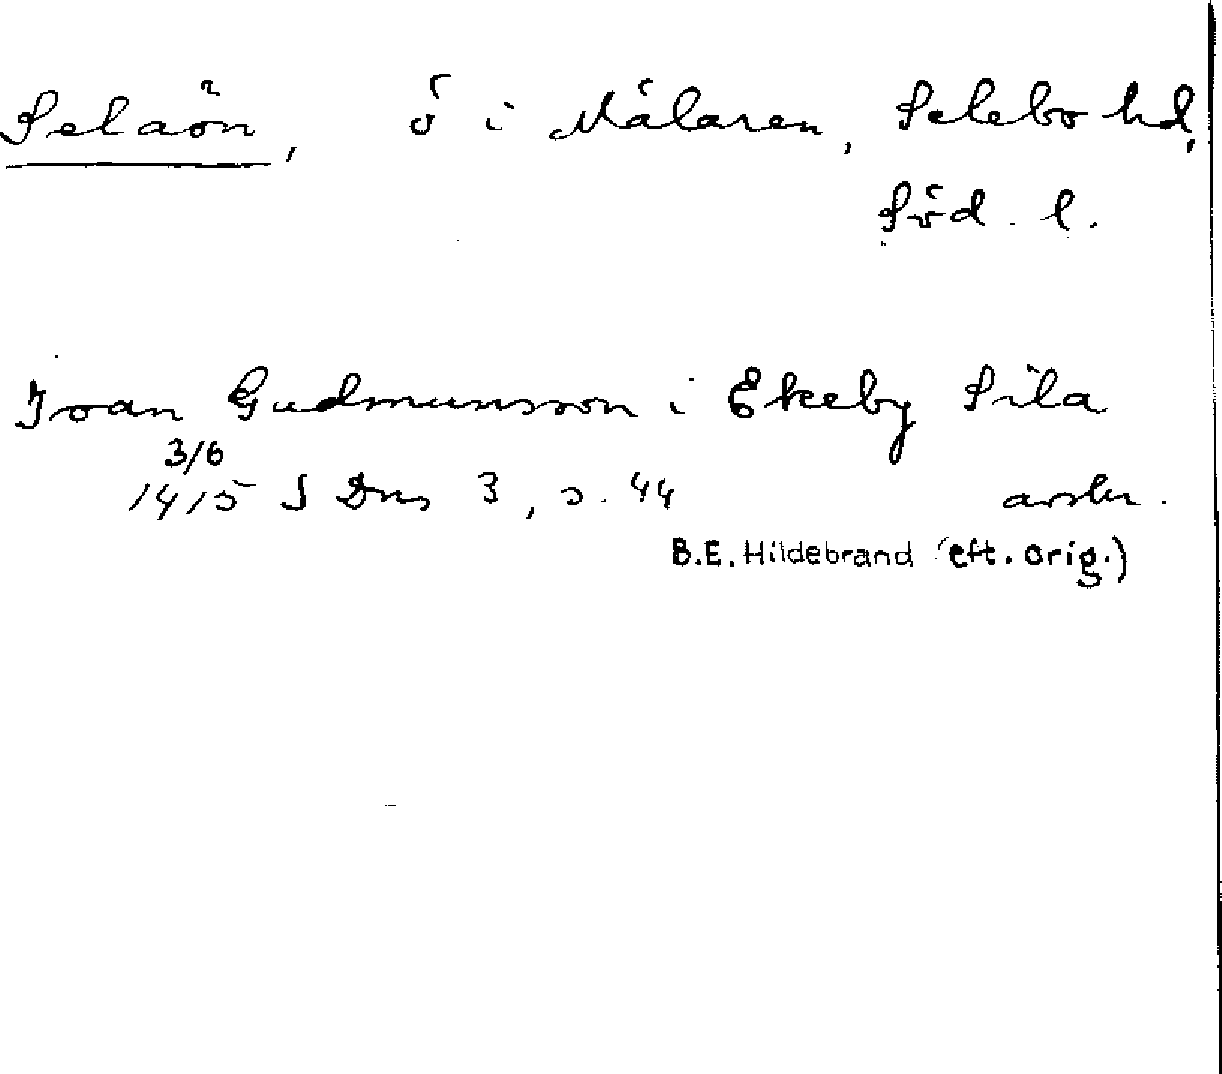 Selaön, ö i Mälaren, Selebo hd,
Söd. l.
Joan Gudmunsson i Ekeby Sila
3/6
1415 S Dns 3, s. 44 avskr.
B.E. Hildebrand (eft. orig.)